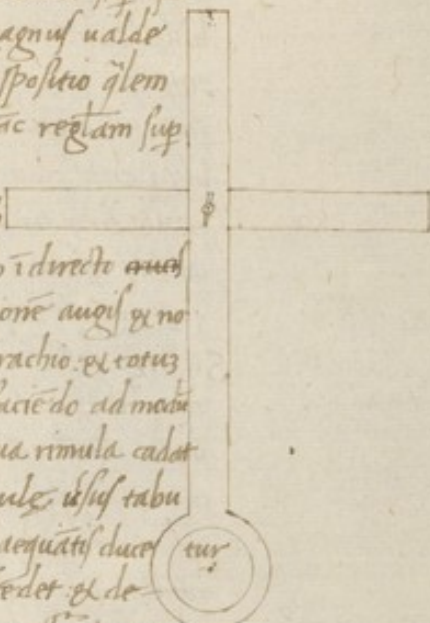 agnus ualde
spositio q̃lem
nc reglam sup
ĩ directo aues
one augis & no
rachio & totuz
faciẽdo ad modũ
ua rimula cadat
ule uersus tabu
aequãtis ducetur
edet & de